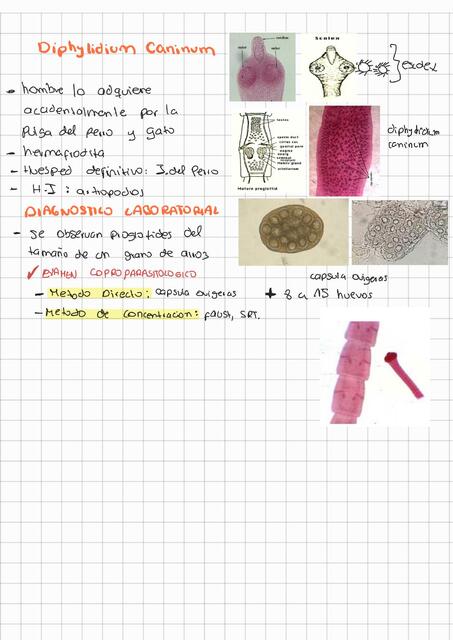 Diphylidium Caninum
- hombre lo adquiere
accidentalmente por la
Pulga del perro y gato
- hermafrodita
- Huesped definitivo: I. del Perro
- H.I : artropodos
DIAGNOSTICO LABORATORIAL
- Se observan proglotides del
tamaño de un grano de arroz
✓ EXAMEN COPROPARASITOLOGICO
- Metodo Directo: capsula ovigeras + 8 a 15 huevos
- Metodo de concentracion: faust, SRT.
Scolex
} escolex
testes
sperm duct
cirrus sac
genital pore
vagina
ovary
Mature proglottid
diphylidium
caninum
capsula ovigeras